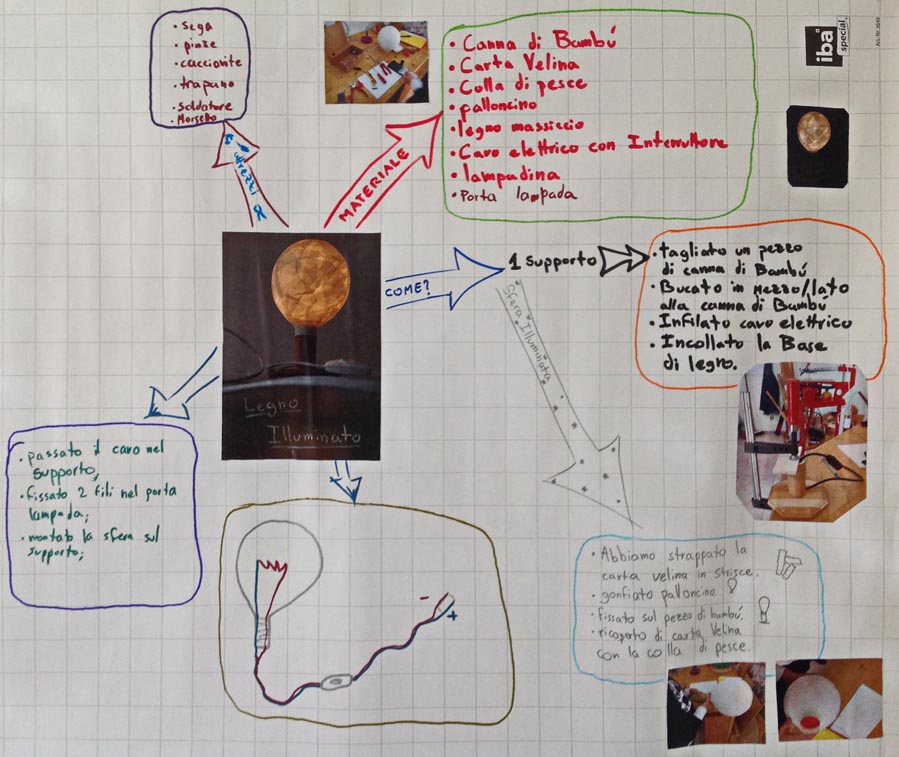 • sega
• pinze
• cacciavite
• trapano
• soldatore
• Morsetto
attrezzi
MATERIALE
• Canna di Bambú
• Carta Velina
• Colla di pesce
• palloncino
• legno massiccio
• Cavo elettrico con Interruttore
• lampadina
• Porta lampada
iba
special
Art.-Nr. 3645
COME?
1 supporto
• tagliato un pezzo
di canna di Bambú
• Bucato in mezzo/lato
alla canna di Bambú
• Infilato cavo elettrico
• Incollato la Base
di legno.
Sfera Illuminata
Legno
Illuminato
• passato il cavo nel
supporto;
• fissato 2 fili nel porta
lampada;
• montato la sfera sul
supporto;
- 
+
• Abbiamo strappato la
carta velina in strisce.
• gonfiato palloncino.
• fissato sul pezzo di bambú.
• ricoperto di carta Velina
con la colla di pesce.